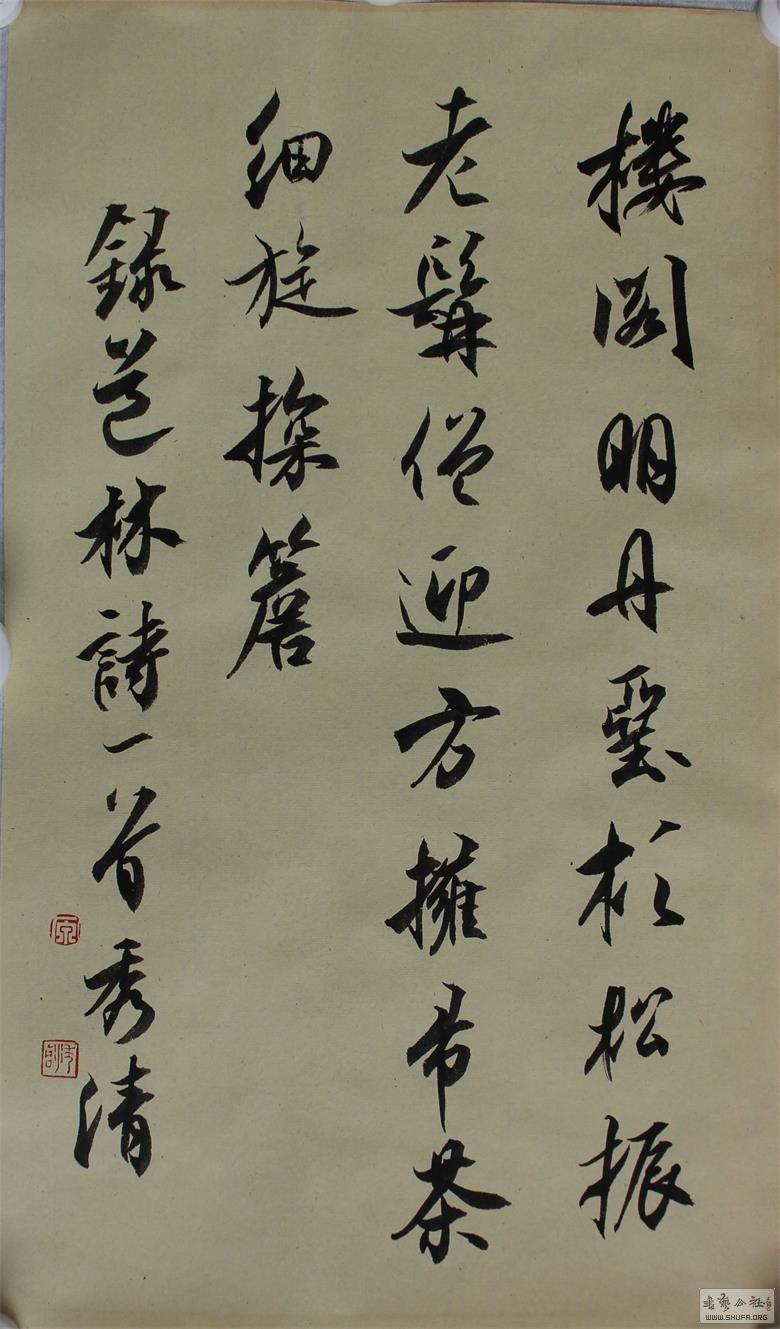 樓閣明丹堊杉松振
老髯僧迎方擁帚茶
細旋探簷
錄道林詩一首秀清
書藝公社
WWW.SHUFA.ORG